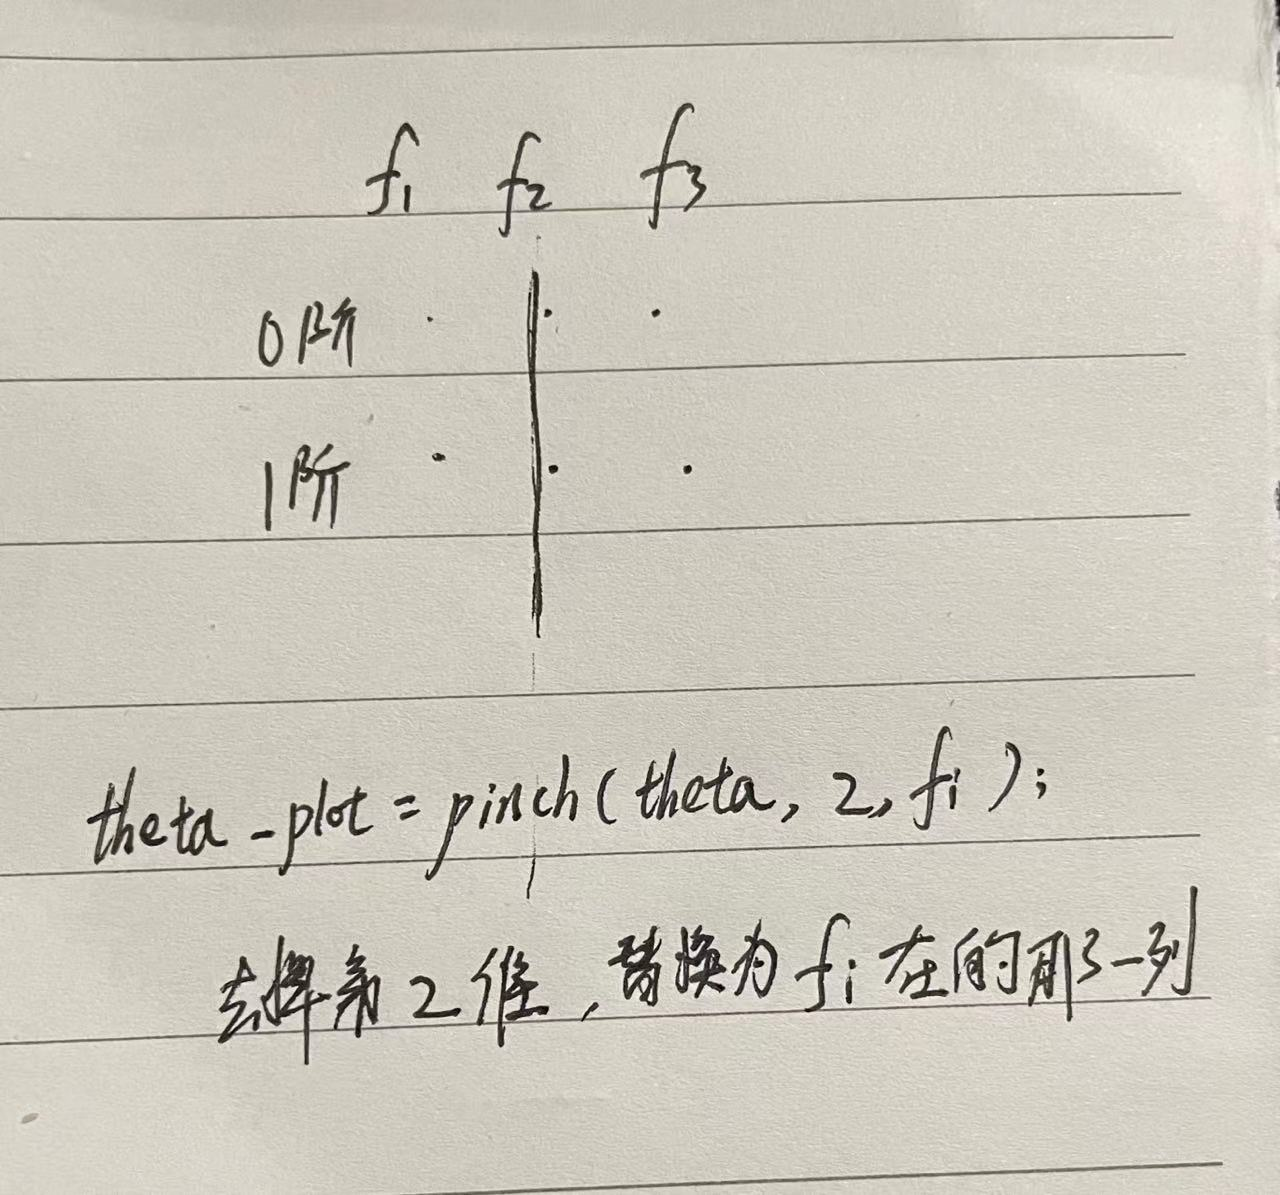 f1 f2 f3
0阶
1阶
theta_plot = pinch(theta, 2, fi);
去掉第2维,替换为fi在的那一列